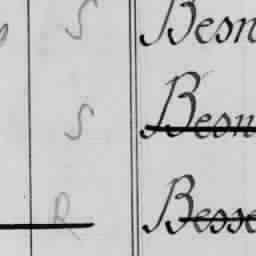 S Besn
S Beon
R Besse